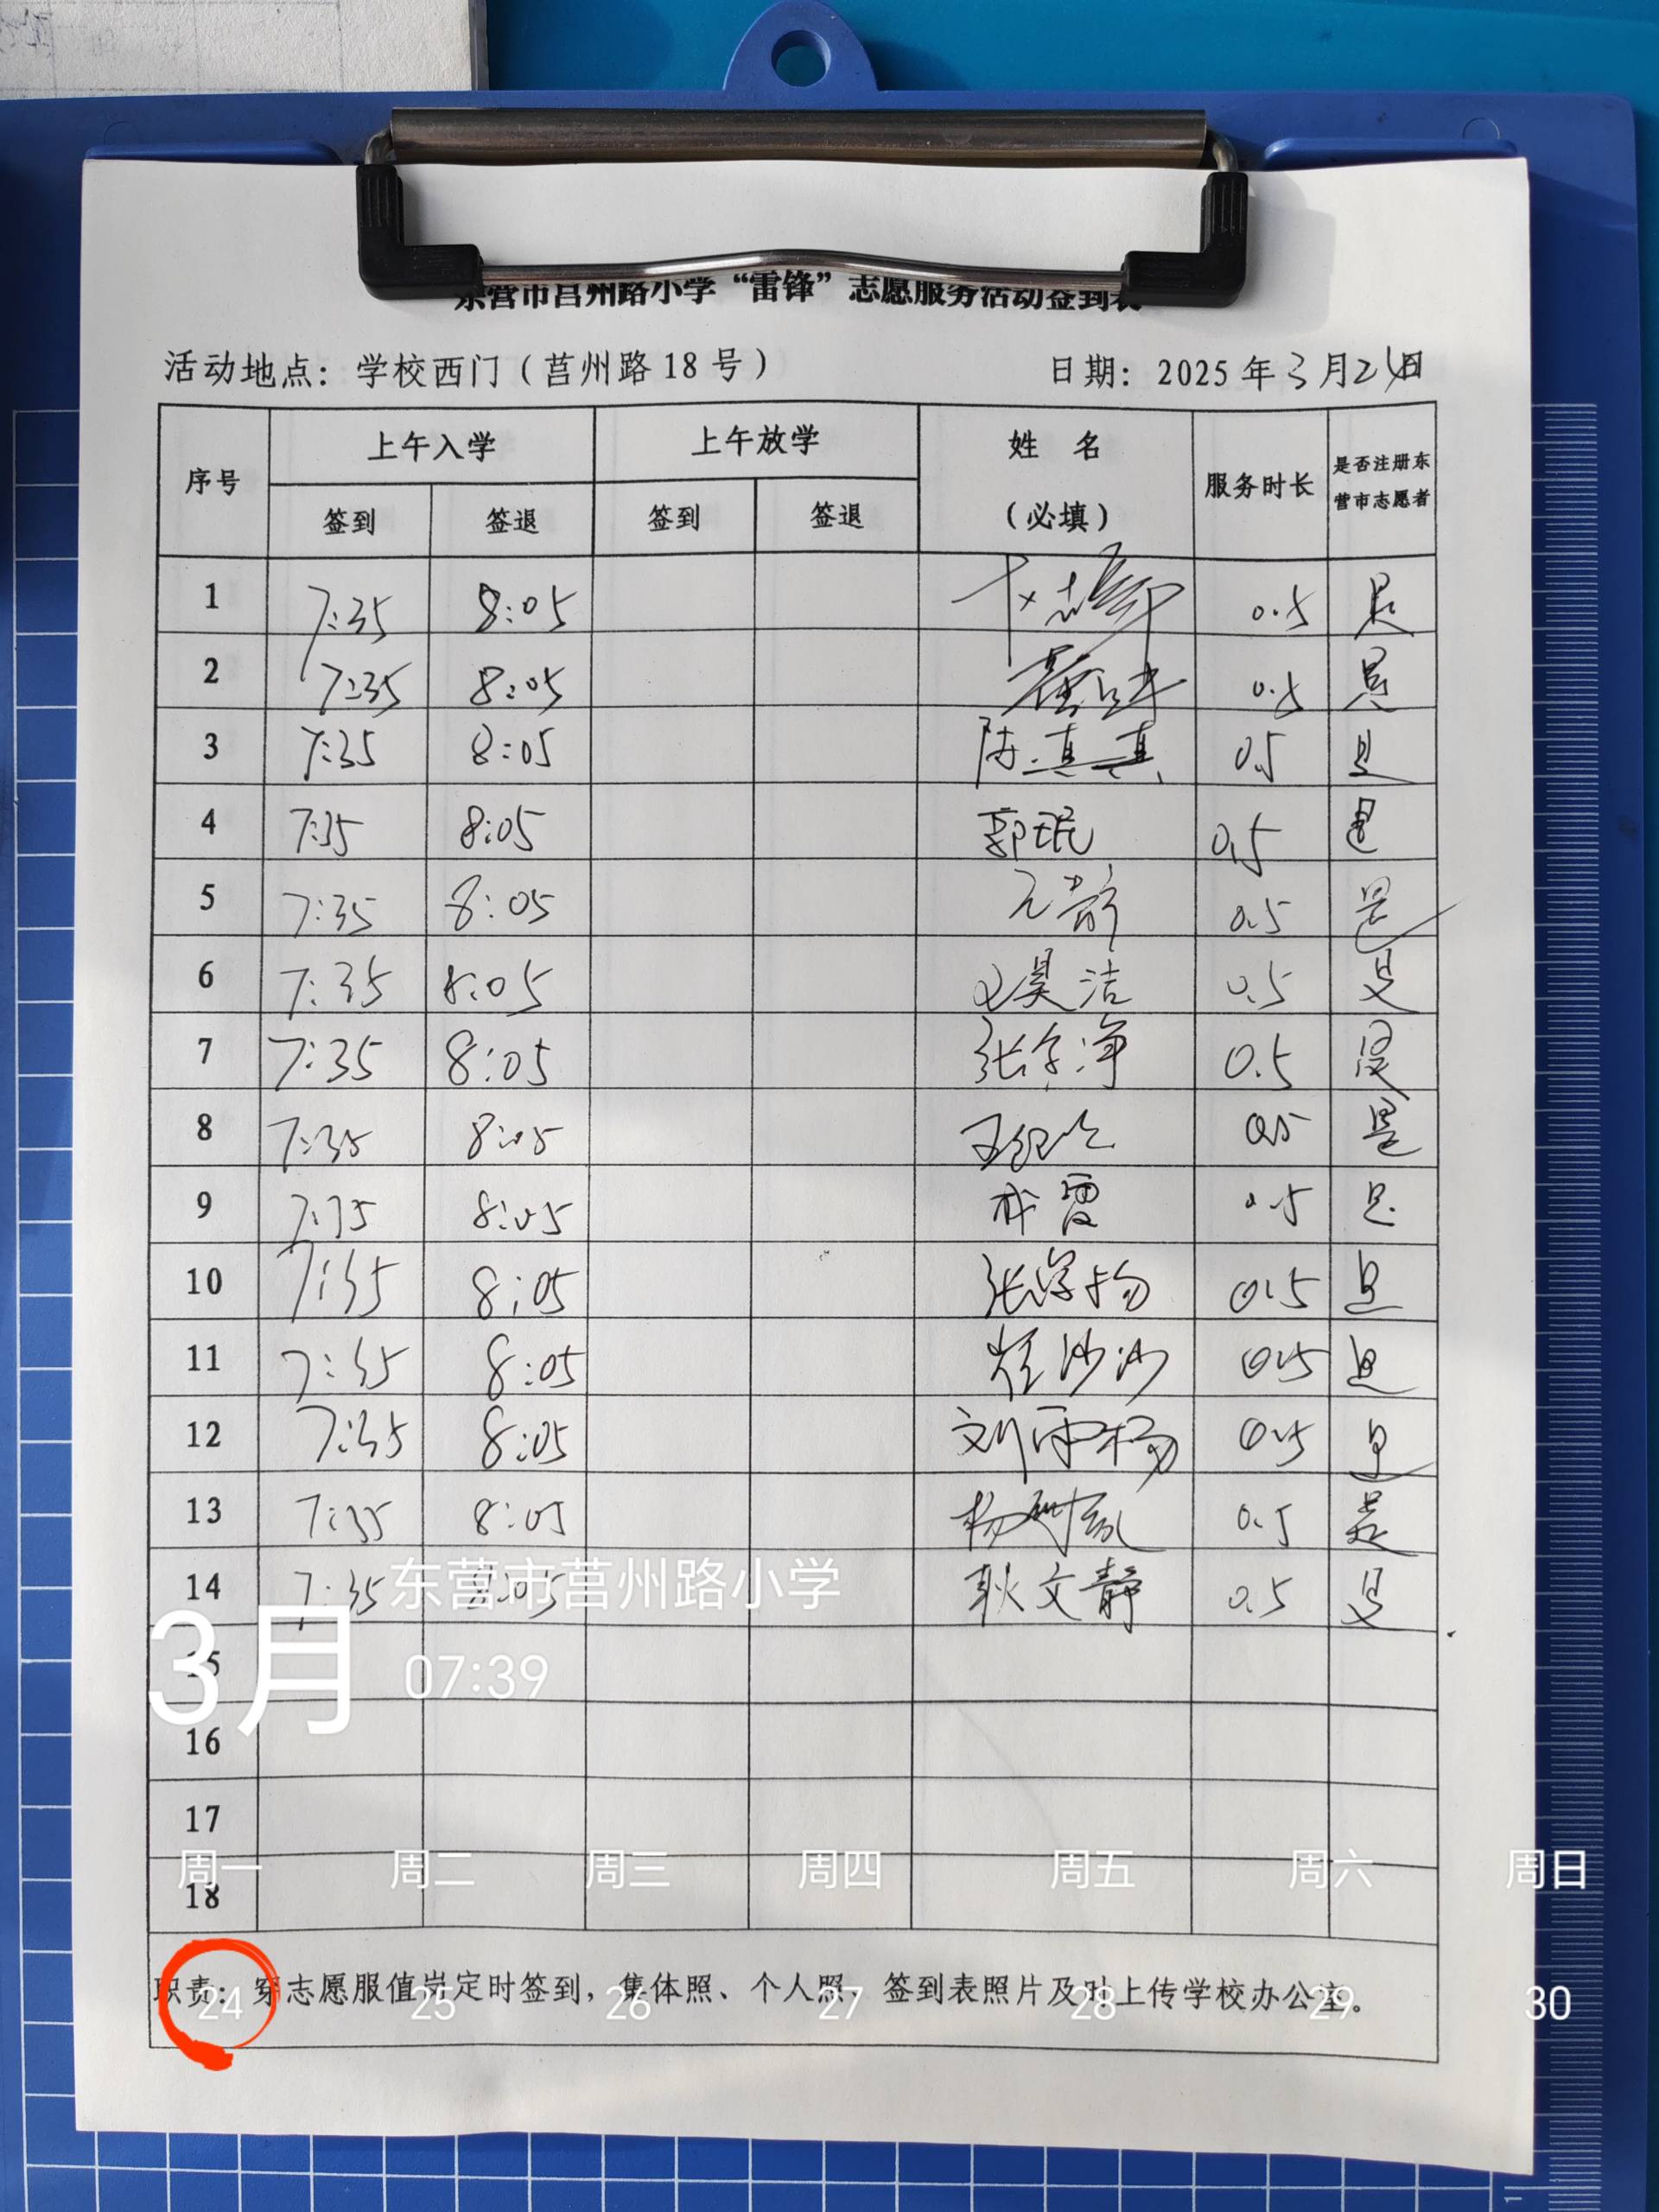 东营市莒州路小学“雷锋”志愿服务活动签到表
活动地点：学校西门（莒州路18号） 日期：2025年3月24日
序号 上午入学 上午放学 姓 名（必填） 服务时长 是否注册东营市志愿者
签到 签退 签到 签退
1 7:35 8:05 0.5 是
2 7:35 8:05 0.5 是
3 7:35 8:05 陈真真 0.5 是
4 7:35 8:05 郭珉 0.5 是
5 7:35 8:05 0.5 是
6 7:35 8:05 昊洁 0.5 是
7 7:35 8:05 张 净 0.5 是
8 7:35 8:05 王 0.5 是
9 7:35 8:05 0.5 是
10 7:35 8:05 张 0.5 是
11 7:35 8:05 崔沙沙 0.5 是
12 7:35 8:05 刘雨杨 0.5 是
13 7:35 8:05 杨 0.5 是
14 7:35 8:05 耿文静 0.5 是
东营市莒州路小学
3月 07:39
15
16
17
周一 周二 周三 周四 周五 周六 周日
18
职责：穿志愿服值岗定时签到，集体照、个人照，签到表照片及时上传学校办公室。
24 25 26 27 28 29 30